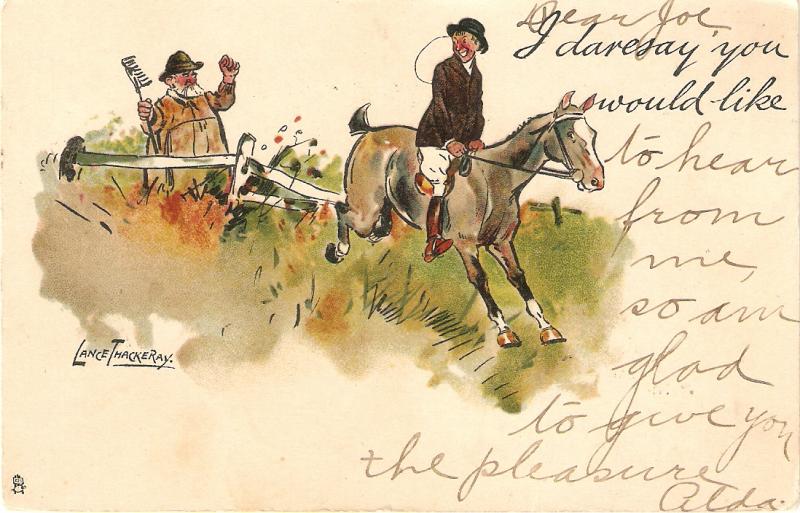 Dear Joe
I daresay you
would like
to hear
from
me,
so am
glad
to give you
the pleasure
Alda.
LANCE THACKERAY.